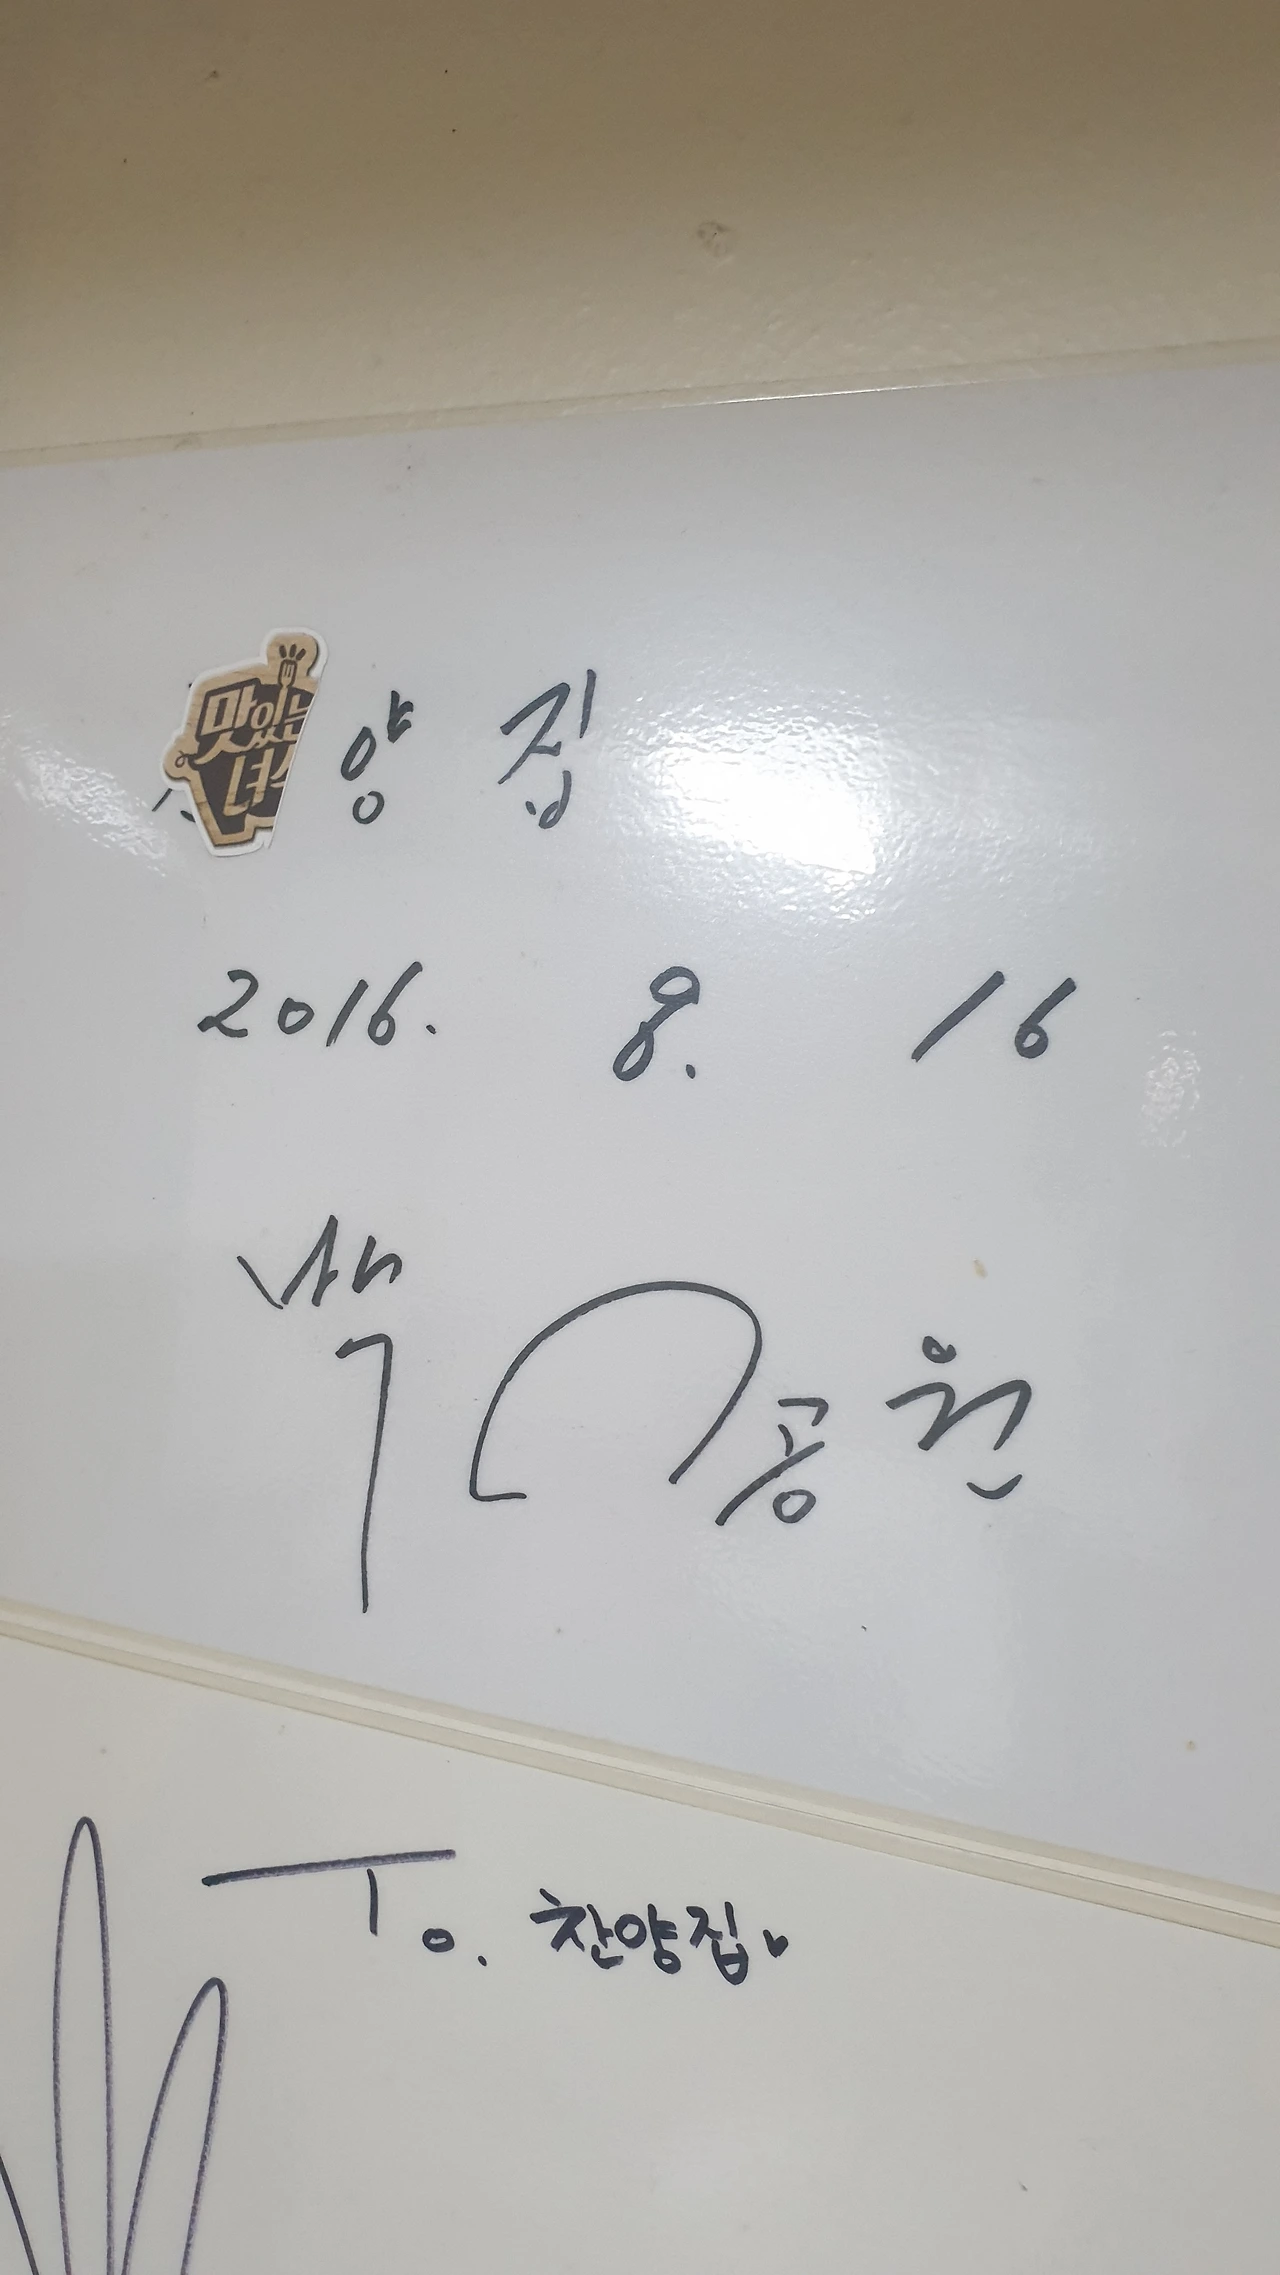 맛있는
녀
양집
2016. 8. 16
백종원
To. 찬양집♥